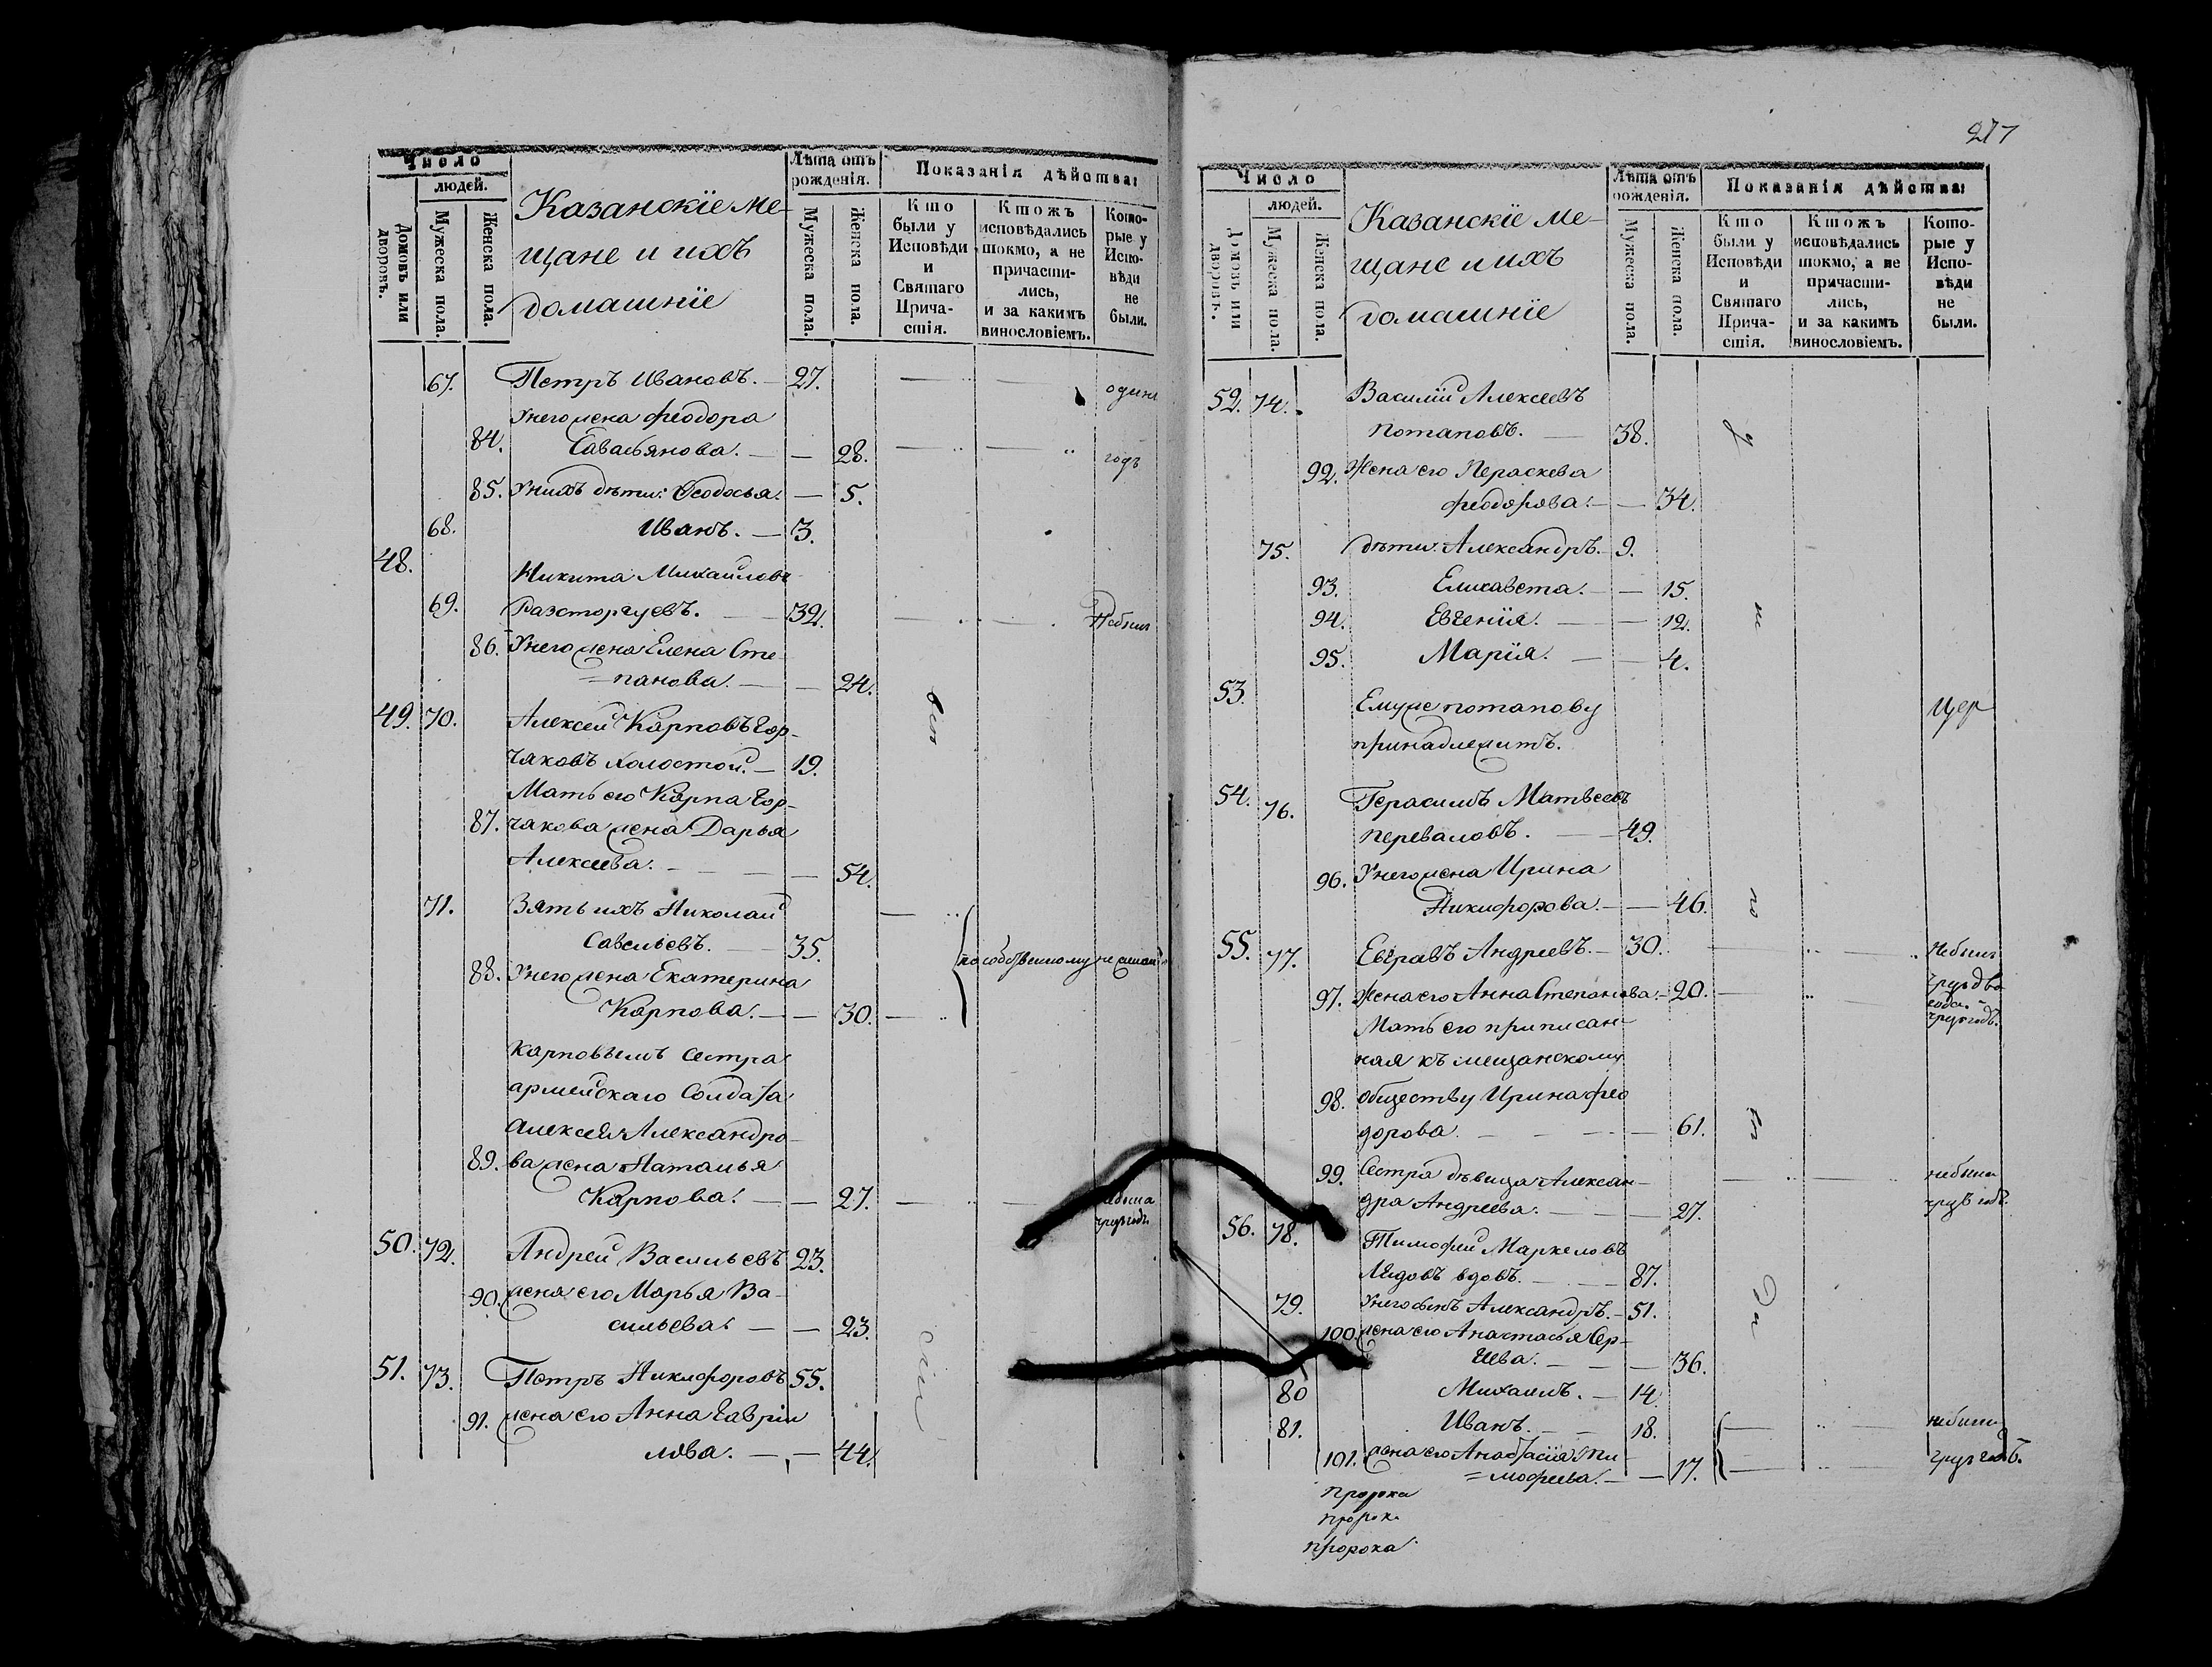 Число
людей.
Домовъ или дворовъ.
Мужеска пола.
Женска пола.
Казанскіе ме-
щане и ихъ
домашніе
Лѣта отъ
рожденія.
Мужеска пола.
Женска пола.
Показанія дѣйства:
Кто
были у
Исповѣди
и
Святаго
Прича-
стія.
Ктожъ
исповѣдались
токмо, а не
причасти-
лись,
и за какимъ
винословіемъ.
Кото-
рые у
Испо-
вѣди
не
были.
67. Петръ Ивановъ. — 27. одинъ
У него жена Феодора
84. Савасьянова. — — 28. годъ
85. У нихъ дѣти: Ѳеодосья. — 5.
68. Иванъ. — 3.
48.
Никита Михайловъ
69. Разсторгуевъ. — 32. Небылъ
86. У него жена Елена Сте-
=панова. — — 24.
49. 70. Алексей Карповъ Гор-
чаковъ холостой. — 19.
Мать его Карпа Гор-
87. чакова жена Дарья
Алексеева. — — 54.
71. Зять ихъ Николай
Савельевъ. — 35.
по собственному желан
88. У него жена Екатерина
Карпова. — — 30.
Карповымъ сестра
армейскаго Солдата
Алексея Александро-
89. ва жена Наталья
Карпова. — — 27. небыла
чрез годъ
50. 72. Андрей Васильевъ 23.
90. жена его Марья Ва-
сильева. — — 23.
51. 73. Петръ Никифоровъ 55.
91. жена его Анна Гаврии
лова. — — 44.
277
Число
людей.
Домовъ или дворовъ.
Мужеска пола.
Женска пола.
Казанскіе ме-
щане и ихъ
домашніе
Лѣта отъ
рожденія.
Мужеска пола.
Женска пола.
Показанія дѣйства:
Кто
были у
Исповѣди
и
Святаго
Прича-
стія.
Ктожъ
исповѣдались
токмо, а не
причасти-
лись,
и за какимъ
винословіемъ.
Кото-
рые у
Испо-
вѣди
не
были.
52. 74. Василій Алексеевъ
Потаповъ. — 38.
92. Жена его Пераскева
Феодорова. — — 34.
75. дѣти: Александръ. — 9.
93. Елизавета. — — 15.
94. Евгенія. — — 12.
95. Марія. — — 4.
53.
Ему же потапову цер
принадлежитъ.
54. 76. Герасимъ Матвеевъ
Переваловъ. — 49.
96. У него жена Ирина
Никифорова. — — 46.
55. 77. Евгравъ Андреевъ. — 30. Небылъ
97. Жена его Анна Степанова. — 20.
чрезгодъ.
Мать его приписан-
ная къ мещанскому
98. обществу Ирина Фео
дорова. — — 61.
99. Сестра дѣвица Алексан- небыла
дра Андреева. — — 27. чрезъ годъ
56. 78. Тимофей Маркеловъ
вдовъ. — 87.
79. У него сынъ Александръ. — 51.
100. жена его Анастасья Сер-
геева. — — 36.
80 Михаилъ. — 14.
81. Иванъ. — 18. небыли
101. жена его Анастасія Ти
=мофеева. — — 17. чрез годъ.
пророка
пророк
пророка